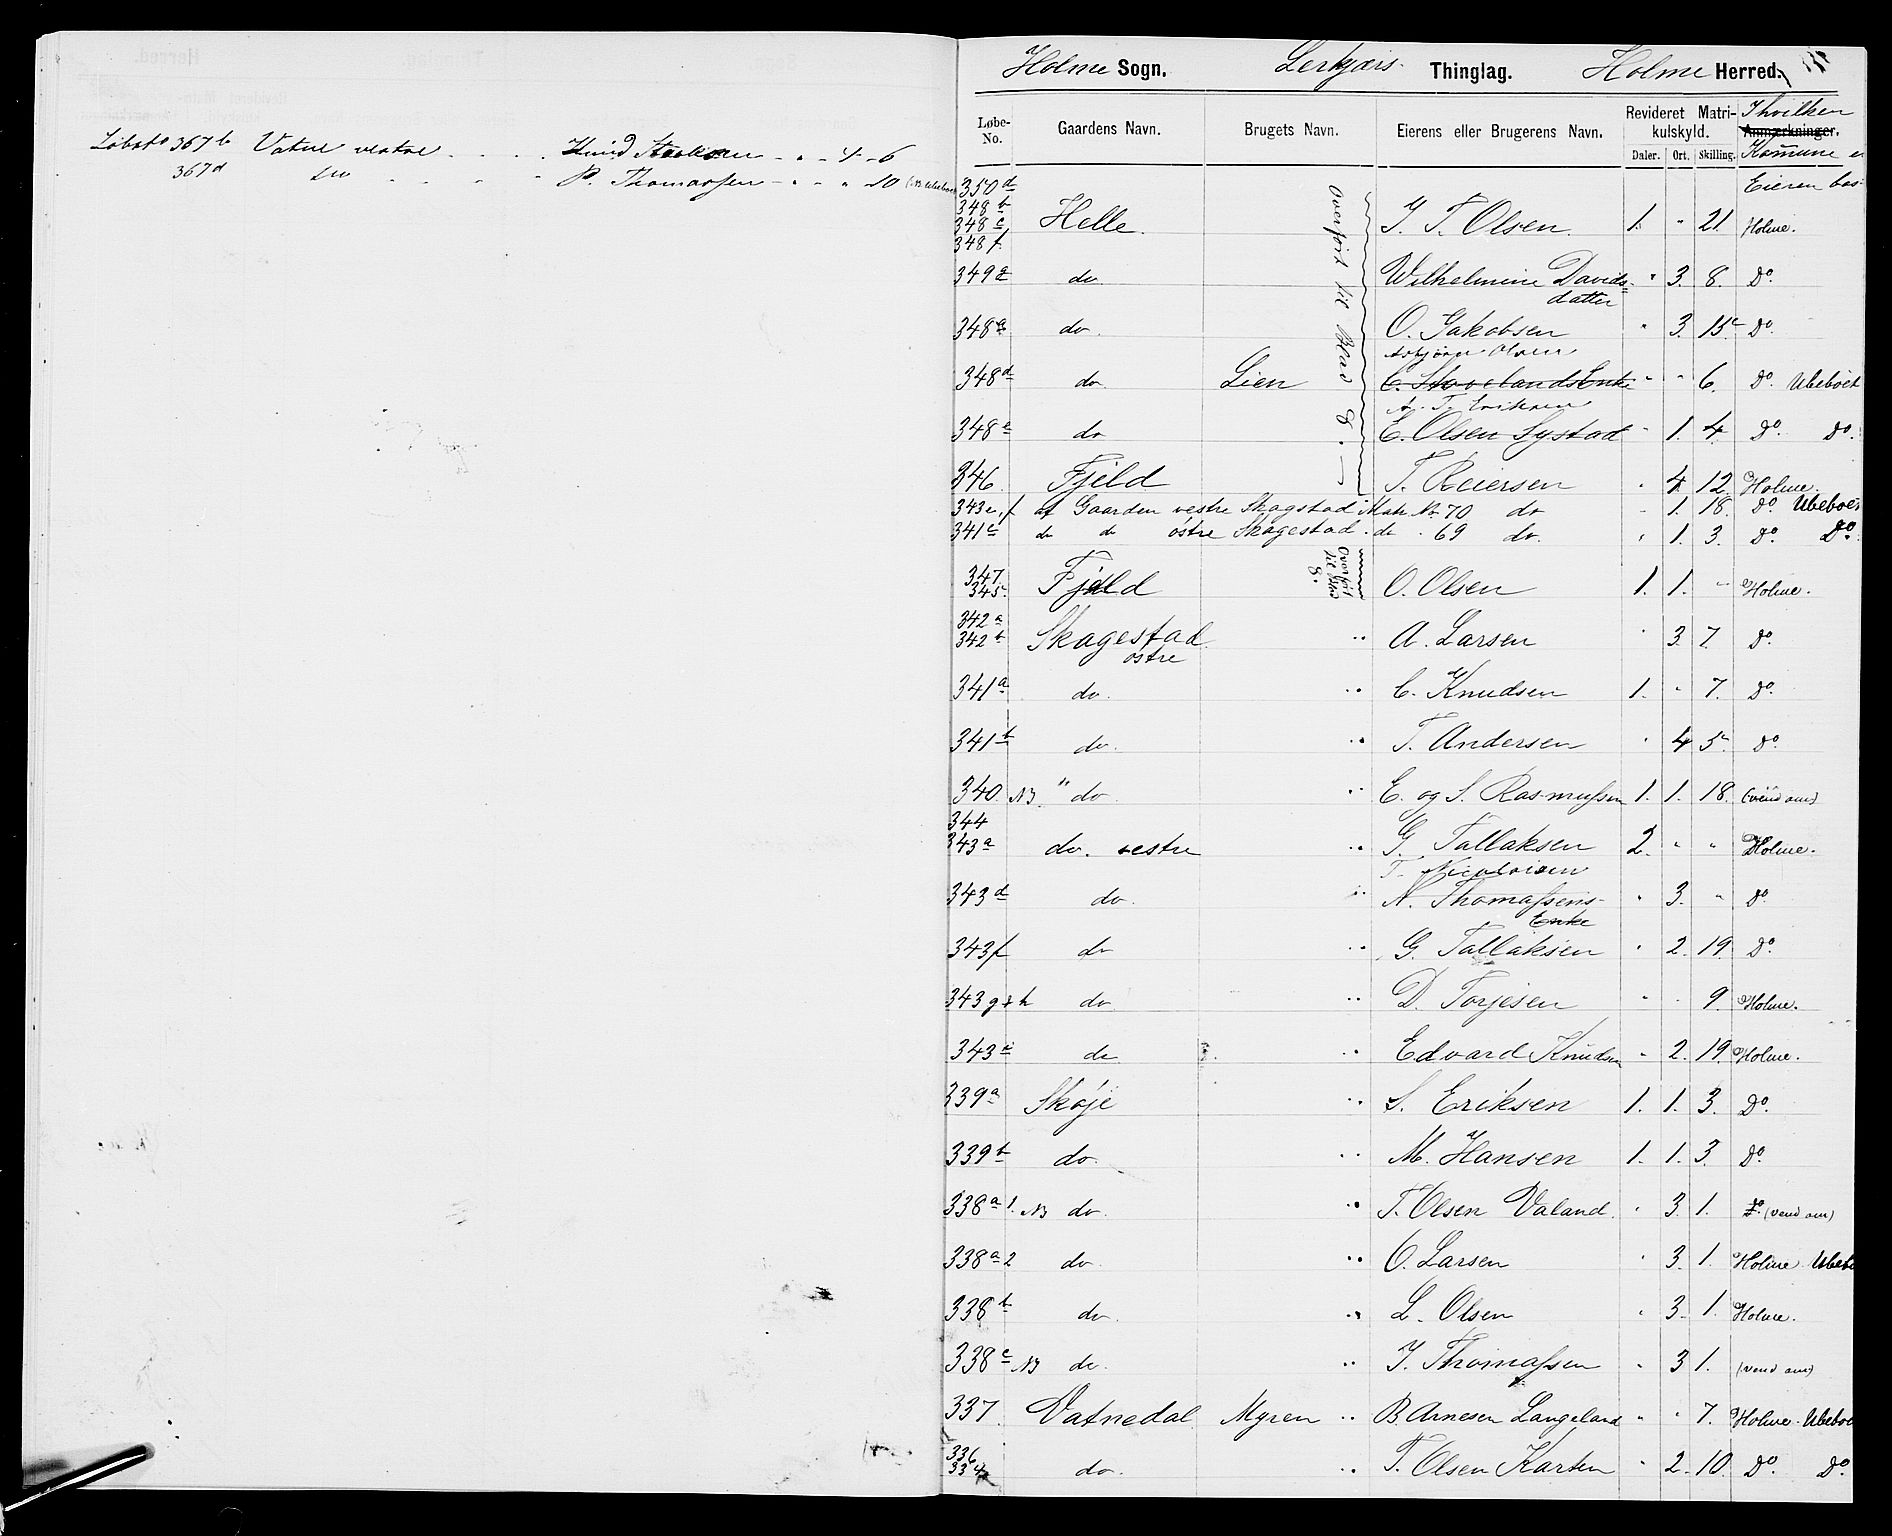 Løbeno 367 b Vatne vestre . . . Knud - " - 4 - 6
367 d do - - - P. Thomassen - " - " 10 (NB Ubeboet
Holme Sogn. Lerkjærs Thinglag. Holme Herred.
Løbe-No. Gaardens Navn. Brugets Navn. Eierens eller Brugerens Navn. Revideret Matrikulskyld. Daler. Ort. Skilling. Anmærkninger. I hvilken Kommune er Eieren bos.
350 d
348 b
348 c Helle. J. T. Olsen. 1. " 21. Holme.
348 f.
349 a do. Wilhelmine Davids= " 3. 8. Do.
datter
348 a do. O. Jakobsen " 3. 15 Do.
Asbjørn Olsen
348 d do. Lien C. Stovelands Enke " " 6. Do. Ubeboet
A. T. Eriksen
348 e do E. Olsen Systad " 1. 4. Do. Do.
Overført til Blad 8.
346. Fjeld T. Reiersen " 4. 12. Holme.
343 e, f af Gaarden vestre Skagstad Matr. No. 70 do - 1. 18. Do. Ubeboet
341 c do do østre Skagestad. do . 69 do. " 1. 3. Do. Do.
347.
345. Fjeld O. Olsen 1. 1. " Holme.
Overført til Blad 8.
342 a
342 b Skagestad " A. Larsen " 3. 7. Do.
østre
341 a do. " C. Knudsen 1. " 7. Do.
341 b do. " T. Andersen " 4 5. Do.
340 NB. " do. " E. og S. Rasmussen 1. 1. 18. (vend om)
344
343 a do. vestre " G. Tallaksen 2. " " Holme.
T. Nicolaisen
343 d do. " N. Thomassens " 3. " Do
Enke
343 f do " G. Tallaksen " 2. 19. Do.
343 g + h do. " D. Torjesen " " 9. Holme.
343 c do " Edvard Knudsen " 2. 19. Holme.
339 a Skøje " S. Eriksen 1. 1. 3. Do.
339 b do. " M. Hansen 1. 1. 3. Do.
338 a 1. NB do. " T. Olsen Valand. " 3. 1. Do. (vend om)
338 a 2 do. " O. Larsen " 3. 1. Holme. Ubebo
338 b do. " L. Olsen " 3. 1. Holme.
338 c NB do. " J. Thomassen " 3 1. (vend om)
337. Vatnedal Myren " B. Arnesen Langeland " " 7. Holme. Ubeboe
336
334 do. " T. Olsen Karten " 2. 10. Do. Do